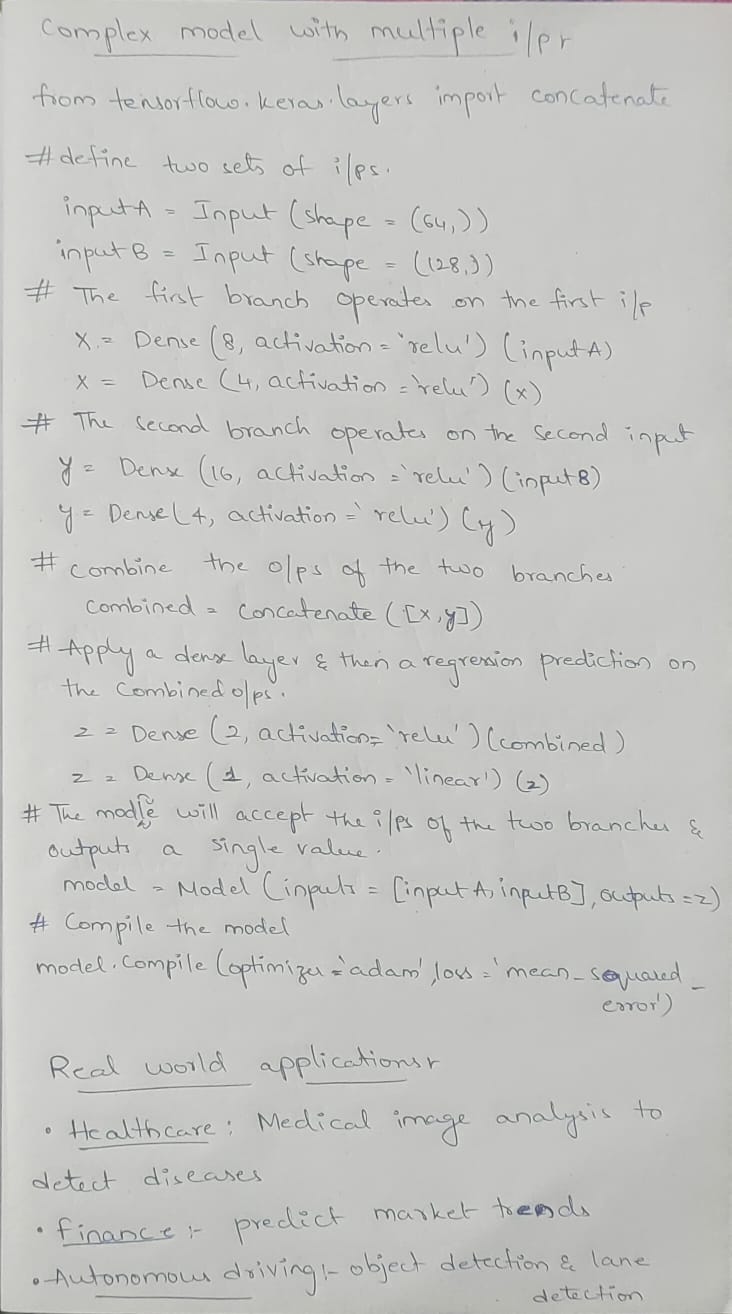 Complex model with multiple i/ps
from tensorflow.keras.layers import concatenate
# define two sets of i/ps.
inputA = Input (shape = (64,))
inputB = Input (shape = (128,))
# The first branch operates on the first i/p
x = Dense (8, activation = 'relu') (inputA)
x = Dense (4, activation = 'relu') (x)
# The second branch operates on the second input
y = Dense (16, activation = 'relu') (inputB)
y = Dense (4, activation = 'relu') (y)
# combine the o/ps of the two branches
combined = concatenate ([x,y])
# Apply a dense layer & then a regression prediction on
the combined o/ps.
z = Dense (2, activation = 'relu') (combined)
z = Dense (1, activation = 'linear') (z)
# The modle will accept the i/ps of the two branches &
outputs a single value.
model = Model (inputs = [inputA, inputB], outputs = z)
# Compile the model
model.compile (optimizer = 'adam', loss = 'mean_squared_
error')
Real world applications
• Healthcare : Medical image analysis to
detect diseases
• finance :- predict market trends
• Autonomous driving :- object detection & lane
detection